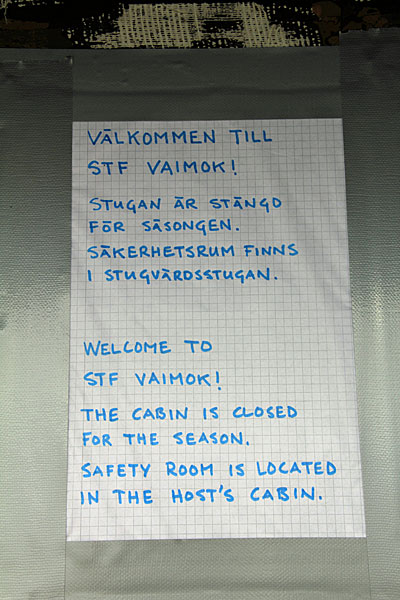 VÄLKOMMEN TILL
STF VAIMOK!
STUGAN ÄR STÄNGD
FÖR SÄSONGEN.
SÄKERHETSRUM FINNS
I STUGVÄRDSSTUGAN.
WELCOME TO
STF VAIMOK!
THE CABIN IS CLOSED
FOR THE SEASON.
SAFETY ROOM IS LOCATED
IN THE HOST'S CABIN.